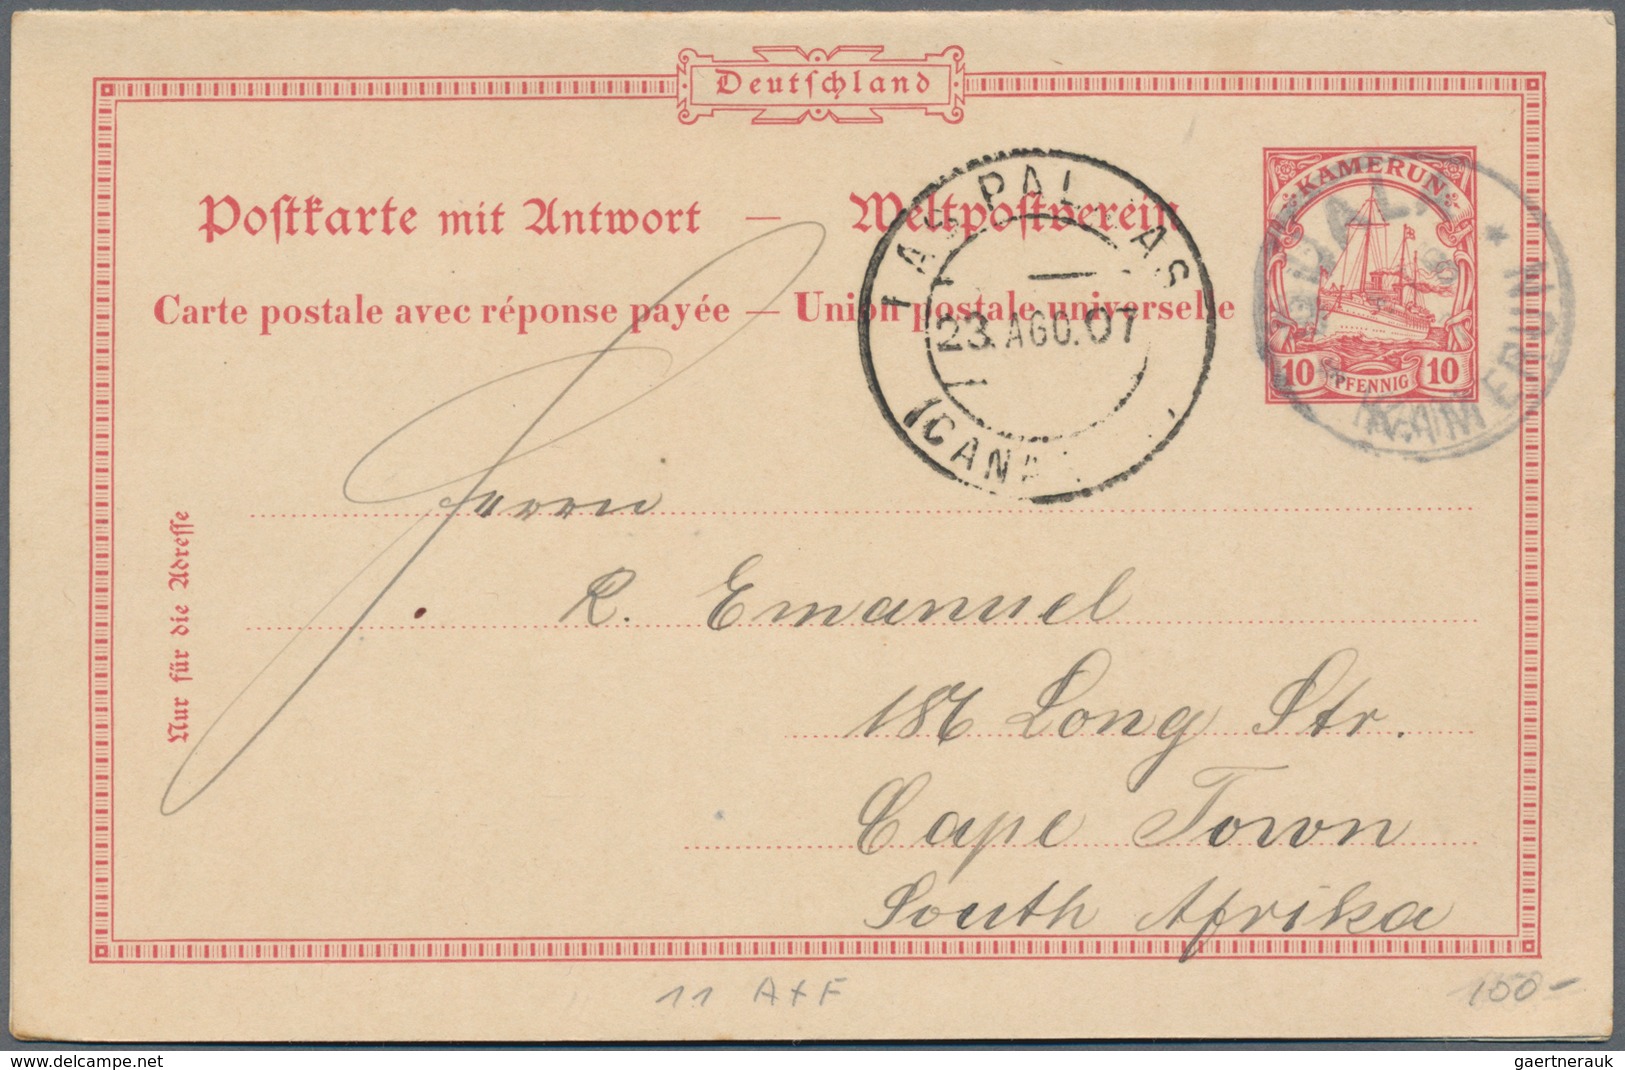 Deutschland
Postkarte mit Antwort — Weltpostverein
Carte postale avec réponse payée — Union postale universelle
KAMERUN
10 PFENNIG 10
LAS PALMAS
23. AGO. 07
(CANA
KAMERUN *
Nur für die Adresse
Herrn
R. Emanuel
186 Long Str.
Cape Town
South Afrika
11 A+F
100-
delcampe.net
gaertnerauk